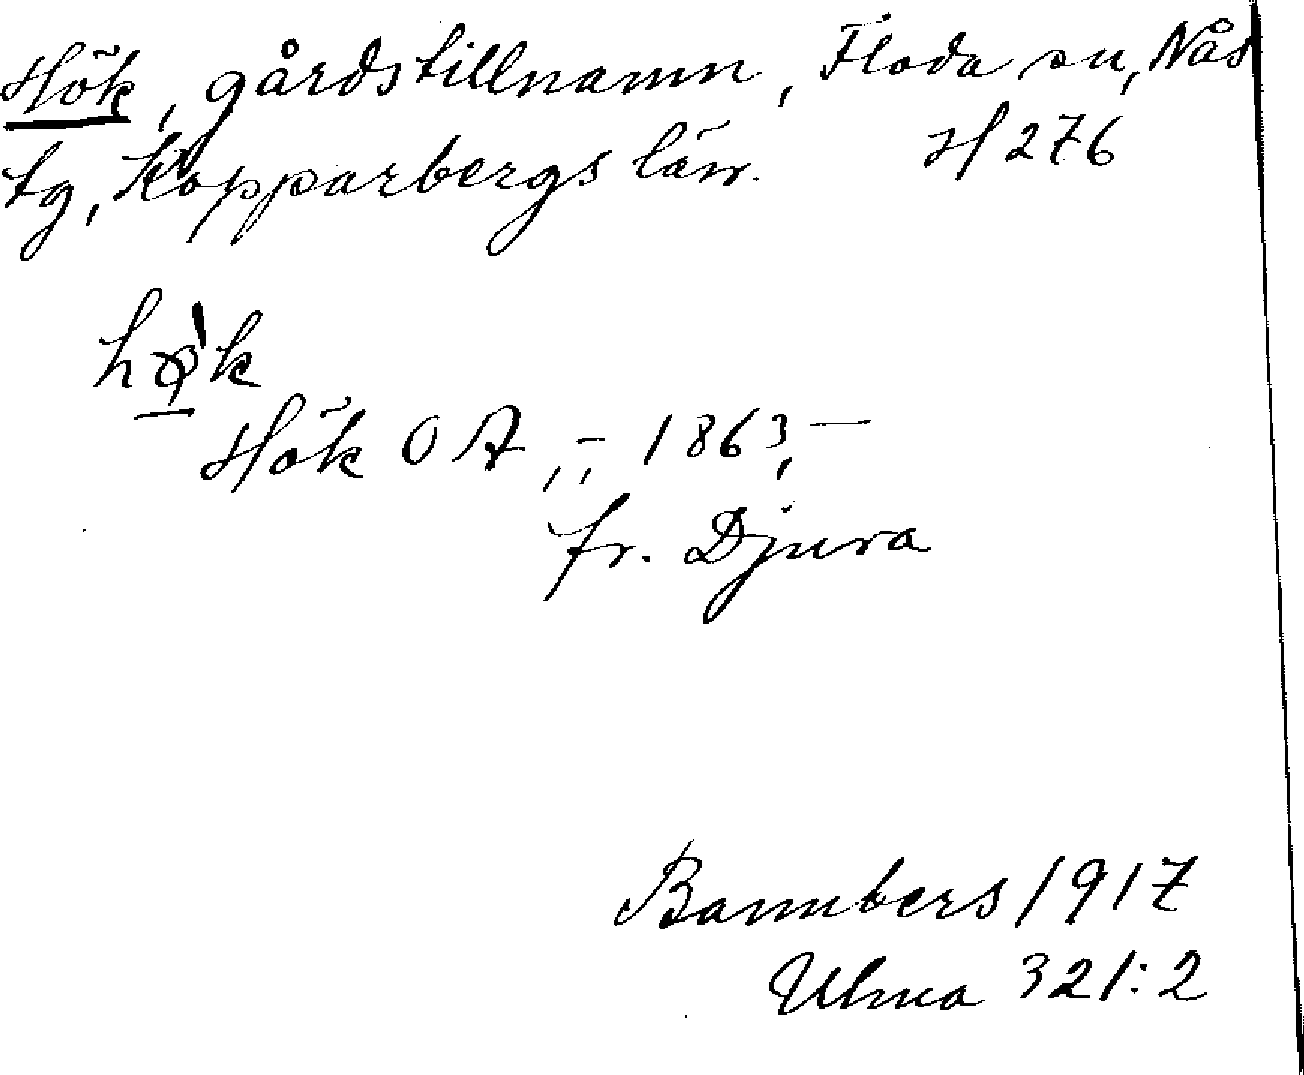 Hök, gårdstillnamn, Floda sn, Nås
tg, Kopparbergs län. H 276
Hök O A, -, 1863, —
fr. Djura
Bannbers 1917
Ulma 321:2